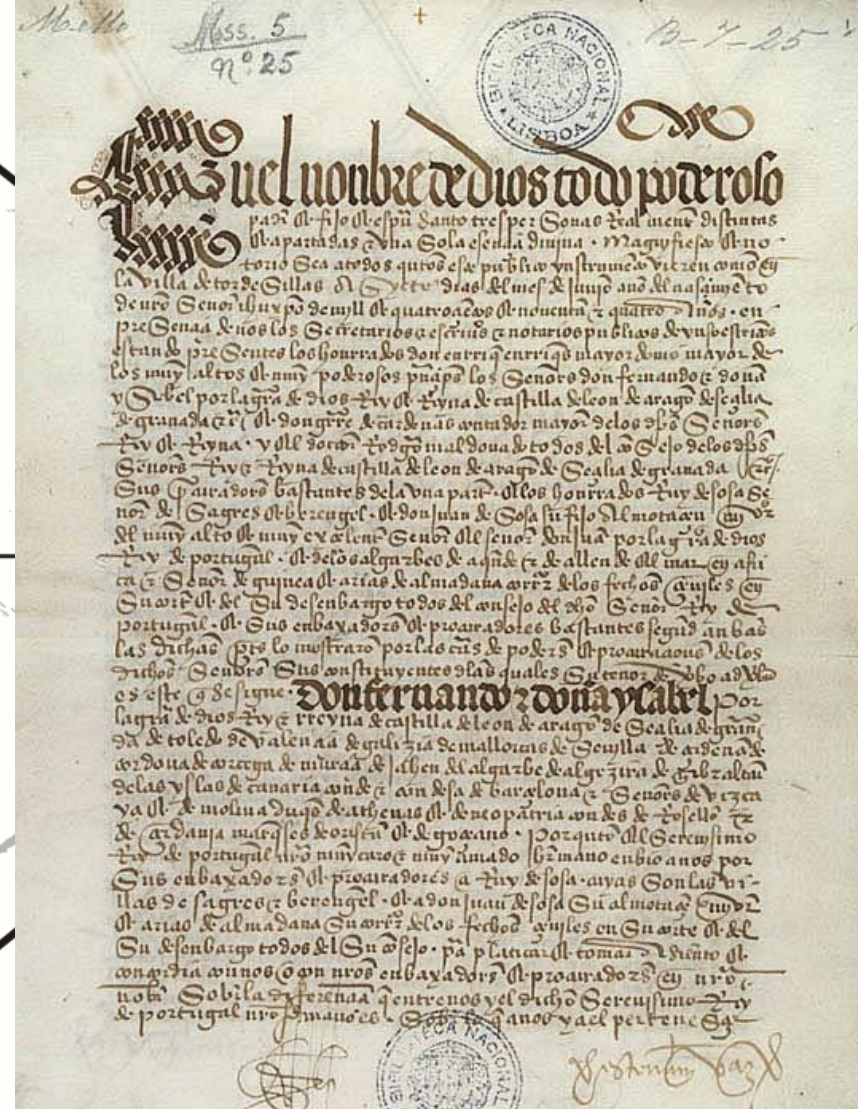 Mss. 5
nº 25
B-7-25
BIBLIOTECA NACIONAL LISBOA
En el nonbre de dios todo poderoso
padr & fijo & espũ santo tres personas Real ment distintas
& apartadas & vna sola esençia diuina. Magnifiesto & no
torio sea a todos quãtos este publico ynstrumẽto vieren como en
la villa de tordesillas a syete dias del mes de junio año del nasçimyẽto
de nrõ señor ihũ xpõ de myll & quatroçiẽtos & nouenta & quatro años. en
presençia de nos los secretarios & escriuos & notarios publicos de yuso escriptos
estando presentes los honrrados don enrriq enrriqs mayordomo mayor de
los muy altos & muy poderosos prĩçips los señors don fernando & doña
ysabel por la grã de dios Rey & Reyna de castilla de leon de aragõ de seçilia
de granada & & don gutrre de cardenas contador mayor de los dhõs señors
Rey & Reyna. y el doctor Rodgõ maldonado todos del cõsejo de los dhõs
señors Rey & Reyna de castilla de leon de aragõ de seçilia de granada
sus procuradors bastantes de la vna part. & los honrrados Ruy de sosa se
ñor de sagres & berengel. & don juan de sosa su fijo almotaçen mayor
del muy alto & muy exçelente señor el señor don juan por la grã de dios
Rey de portugal. & de los algarbes de aquẽde & de allende el mar en afri
ca & señor de guinea & arias de almadana corrg de los fechos çeuiles en
su corte & del su desenbargo todos del consejo del dhõ señor Rey de
portugal. & sus enbaxadors & procuradores bastantes segũd anbas
las dichas ptes lo mostrarõ por las cartas de poders & procuraçions de los
dichos señors sus constituyentes de las quales su tenor de vbo ad vbũ
es este q se sigue. don fernando & doña ysabel por
la grã de dios Rey & rreyna de castilla de leon de aragõ de seçilia de grana
da de toledo de valençia de galizia de mallorcas de seuilla de çerdeña de
cordoua de corçega de murçia de jahen del algarbe de algezira de gibraltar
de las yslas de canaria conde & condesa de barçelona & señors de vizca
ya & de molina duqs de athenas & de neopatria condes de rosellõ
de çerdania marqses de oristã & de goçeano. por quãto el serenisimo
Rey de portugal nrõ muy caro & muy amado hrmano enbio a nos por
sus enbaxadors & procuradores a Ruy de sosa. cuyas son las vi-
llas de sagres & berengel. & a don juan de sosa su almotaçẽ mayor
& arias de almadana su corrg de los fechos çeuiles en su corte & del
su desenbargo todos del su cõsejo. pa platicar & tomar asiento &
concordia con nos o con nros enbaxadors & procuradors en nrõ
nobr sobr la diferençia q entre nos y el dicho serenissimo Rey
de portugal nrõ hrmano es. sobr lo q a nos y a el perteneçe
BIBLIOTECA NACIONAL